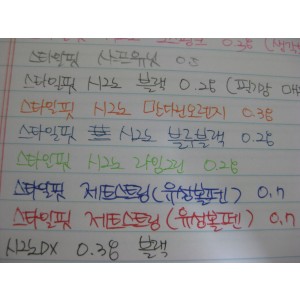 0.38 (생각
스타일핏 샤프유닛 0.5
스타일핏 시그노 블랙 0.28 (필기감
스타일핏 시그노 만다린오렌지 0.38
스타일핏 시그노 블루블랙 0.28
스타일핏 시그노 라임그린 0.28
스타일핏 제트스트림(유성볼펜) 0.7
스타일핏 제트스트림(유성볼펜) 0.7
시그노DX 0.38 블랙